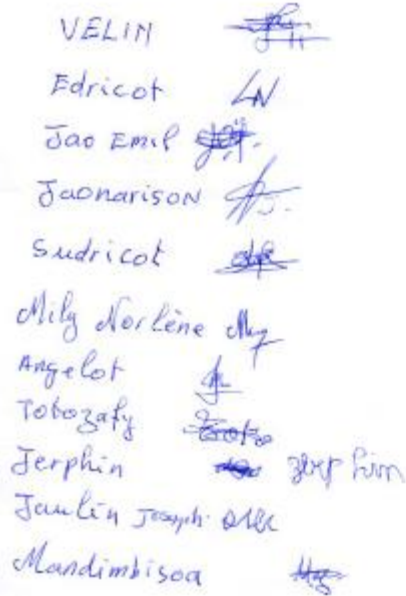 VELIN
Edricot LN
Jao Emil
Jaonarison
Sudricot
Mily Norlène
Angelot
Tobozafy
Jerphin
Jaulin Joseph
Mandimbisoa